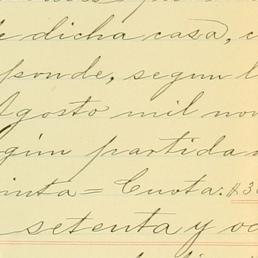 de dicha casa, c
ponde, segun l
Agosto mil nov
egún partida
inta = Cuota. A 30
setenta y oc